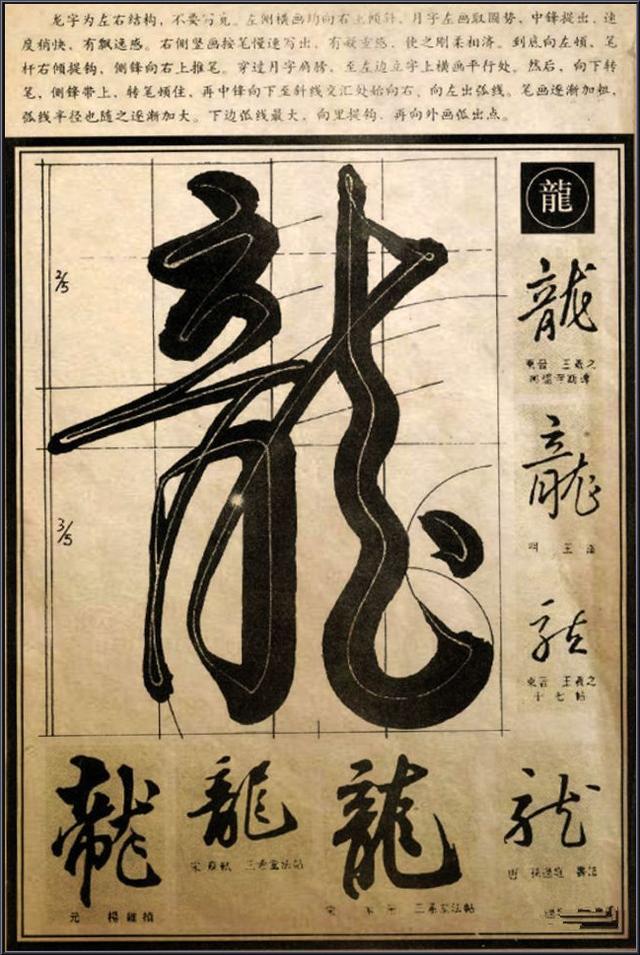 龙字为左右结构，不要写宽。左侧横画均向右上倾斜，月字左画取圆势，中锋提出，速
度稍快，有飘逸感。右侧竖画按笔慢速写出，有凝重感，使之刚柔相济。到底向左顿，笔
杆右倾提钩，侧锋向右上推笔。穿过月字肩膀，至左边立字上横画平行处。然后，向下转
笔、侧锋带上，转笔顿住，再中锋向下至斜线交汇处始向右、向左出弧线。笔画逐渐加粗，
弧线半径也随之逐渐加大。下边弧线最大，向里提钩，再向外画弧出点。
龍
2/5
3/5
龍
龍
東晋 王羲之
龍
明 王
龍
東晋 王羲之
十七帖
龍
元 楊維楨
龍
宋 三希堂法帖
龍
宋 三希堂法帖
龍
唐 孫過庭 書譜